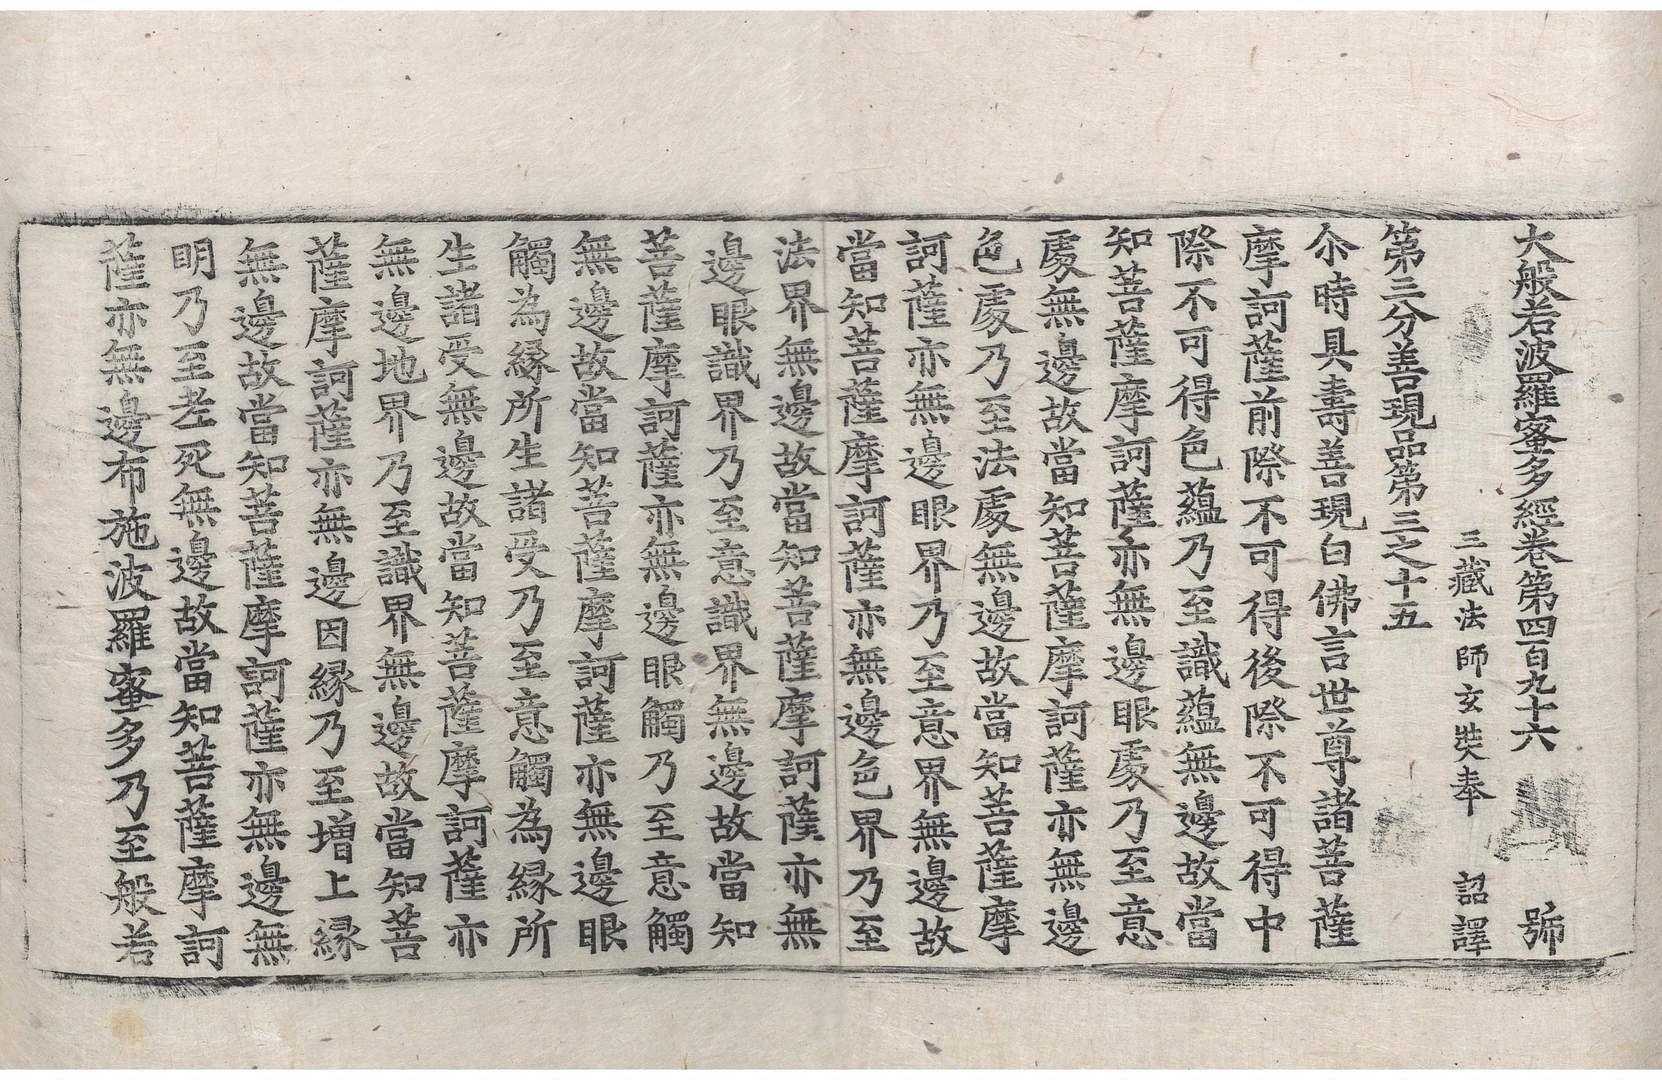 大般若波羅蜜多經卷第四百九十六 號
三藏法師玄奘奉 詔譯
第三分善現品第三之十五
尒時具壽善現白佛言世尊諸菩薩
摩訶薩前際不可得後際不可得中
際不可得色蘊乃至識蘊無邊故當
知菩薩摩訶薩亦無邊眼處乃至意
處無邊故當知菩薩摩訶薩亦無邊
色處乃至法處無邊故當知菩薩摩
訶薩亦無邊眼界乃至意界無邊故
當知菩薩摩訶薩亦無邊色界乃至
法界無邊故當知菩薩摩訶薩亦無
邊眼識界乃至意識界無邊故當知
菩薩摩訶薩亦無邊眼觸乃至意觸
無邊故當知菩薩摩訶薩亦無邊眼
觸為緣所生諸受乃至意觸為緣所
生諸受無邊故當知菩薩摩訶薩亦
無邊地界乃至識界無邊故當知菩
薩摩訶薩亦無邊因緣乃至增上緣
無邊故當知菩薩摩訶薩亦無邊無
明乃至老死無邊故當知菩薩摩訶
薩亦無邊布施波羅蜜多乃至般若